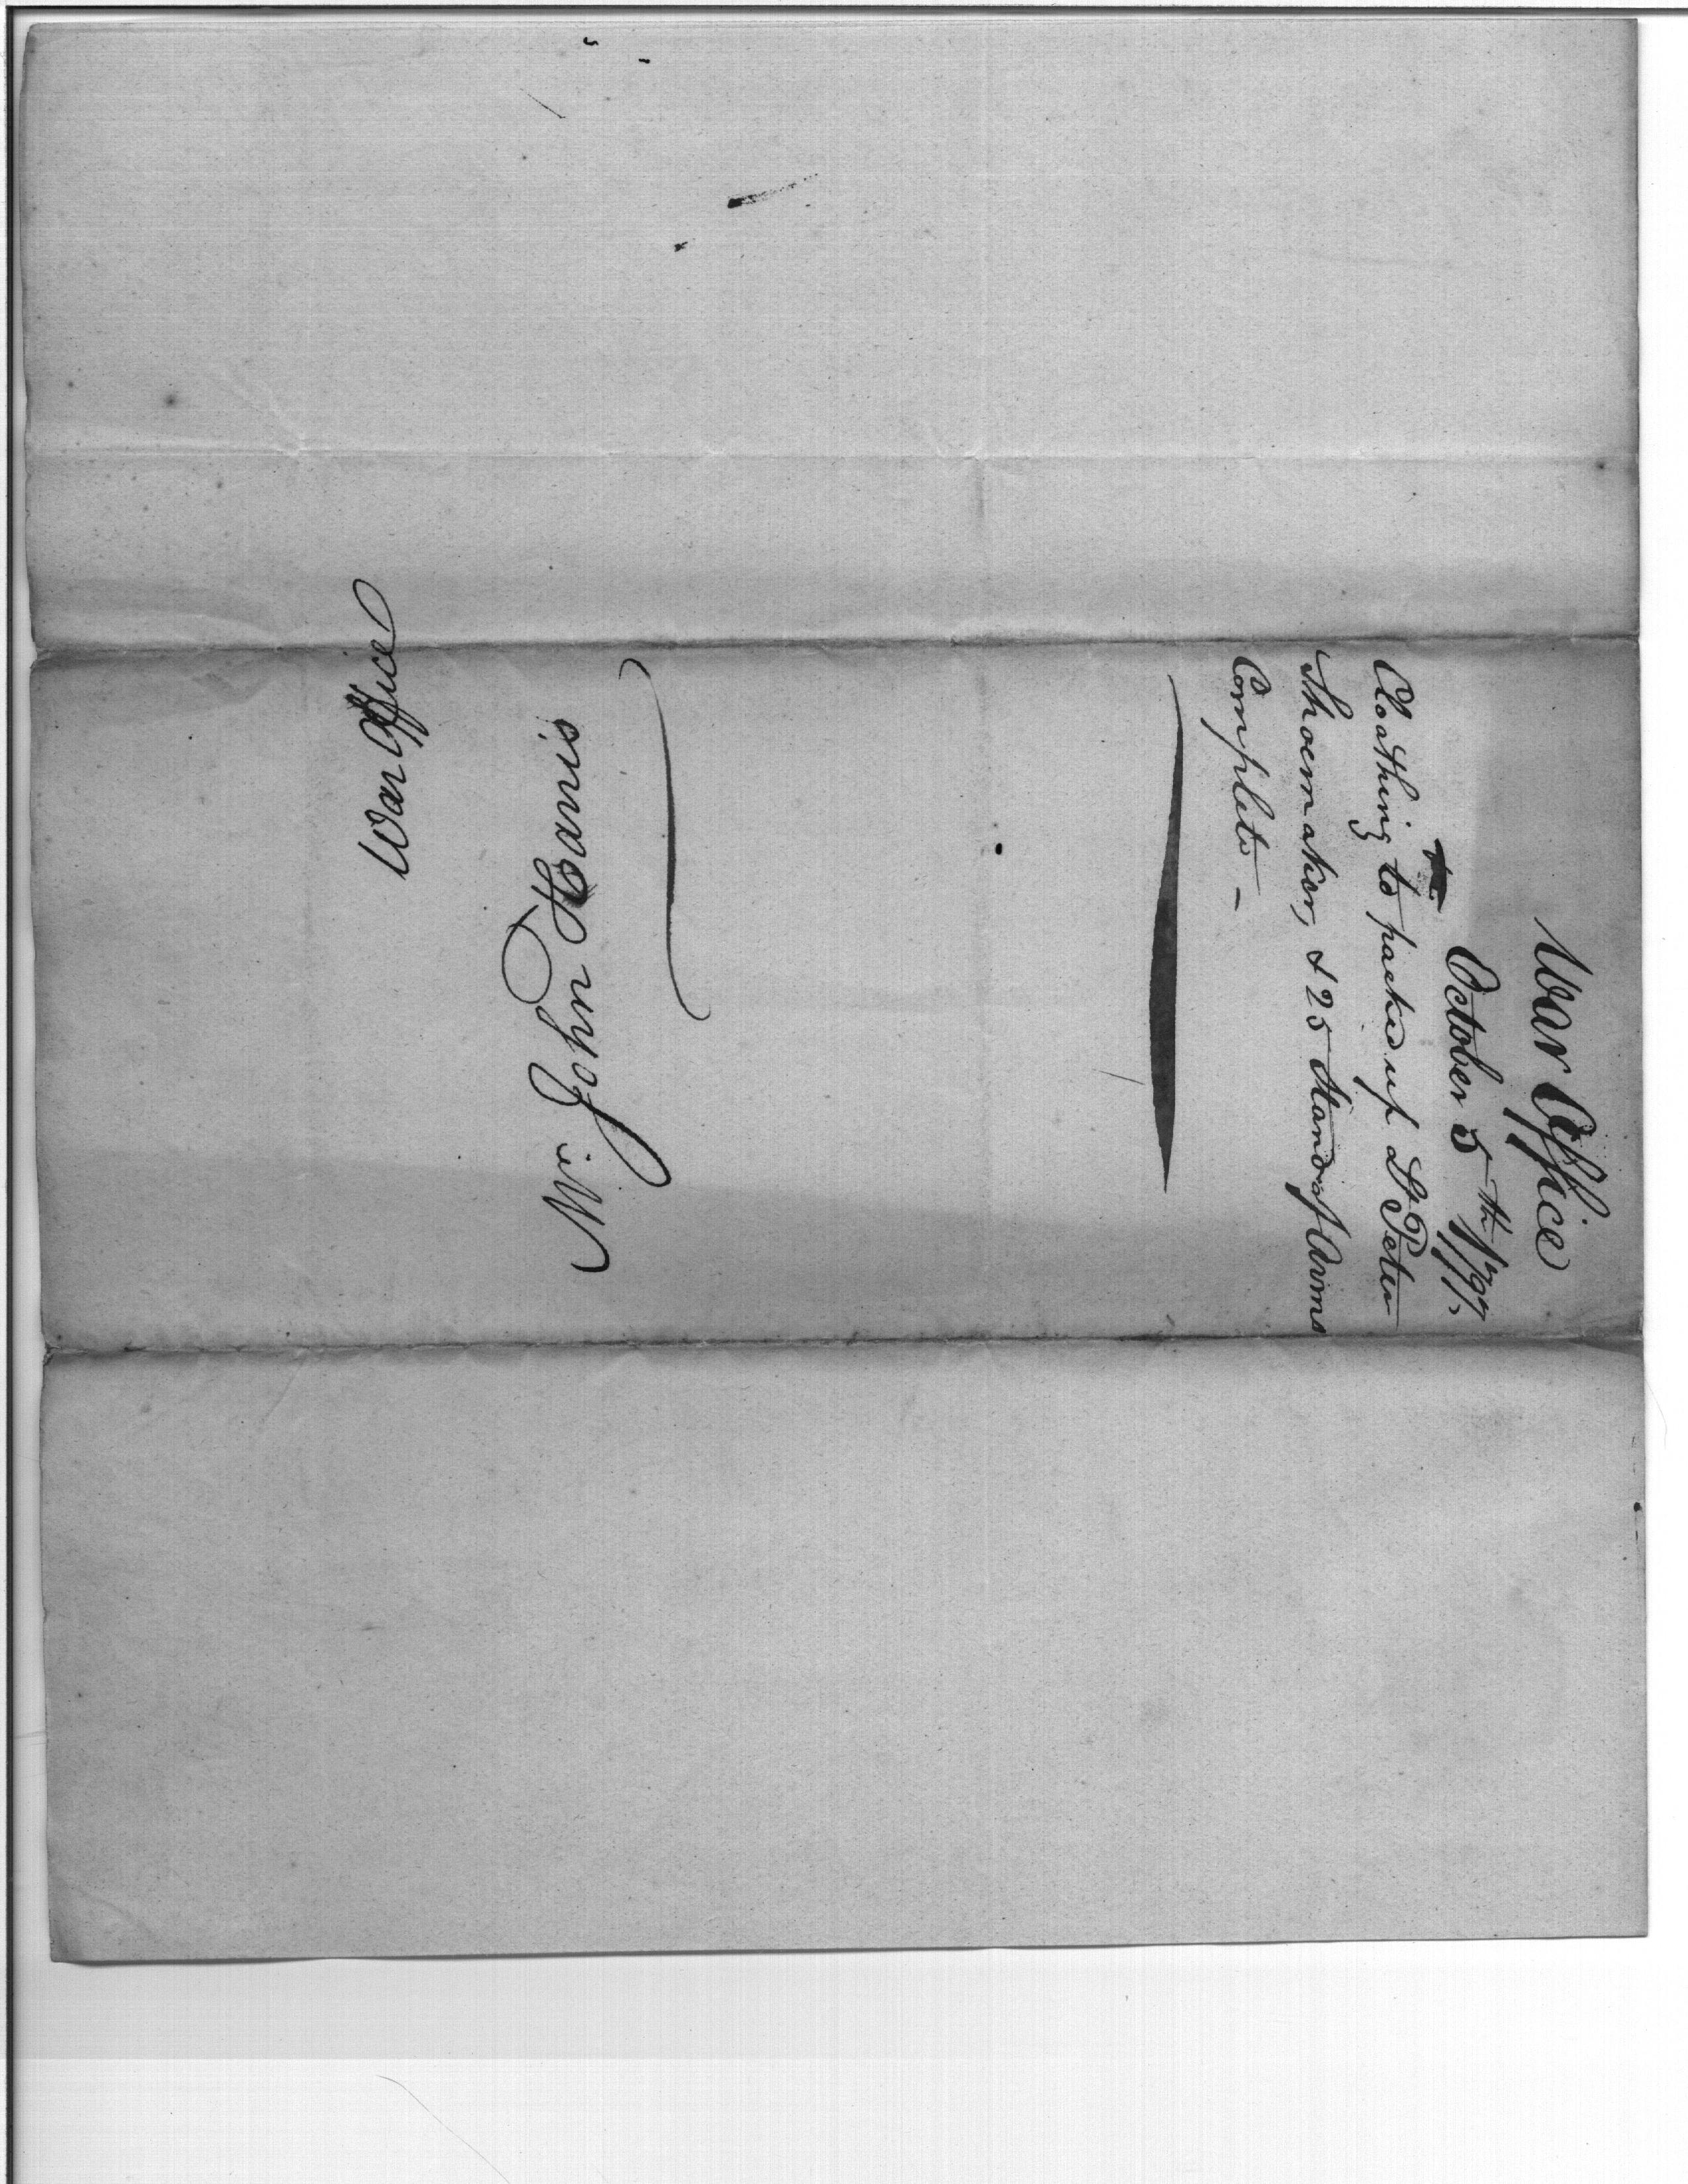 War Office
October 5th 1797.
Cloathing to packed up Lt Peter
Shoemaker, & 25 Stands of Arms
Complete –
Mr John Harris
War Office